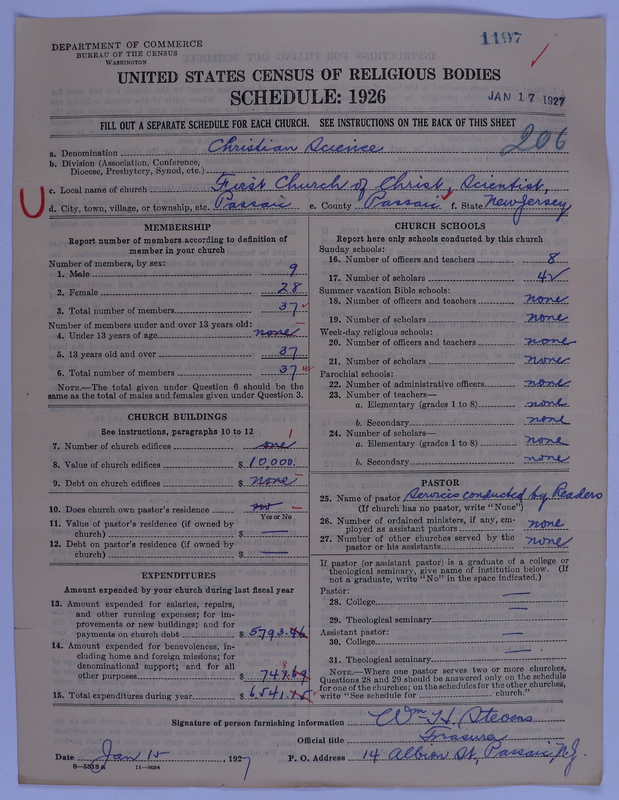 1197
DEPARTMENT OF COMMERCE
BUREAU OF THE CENSUS
WASHINGTON
UNITED STATES CENSUS OF RELIGIOUS BODIES
SCHEDULE: 1926
JAN 17 1927
FILL OUT A SEPARATE SCHEDULE FOR EACH CHURCH. SEE INSTRUCTIONS ON THE BACK OF THIS SHEET
206
a. Denomination Christian Science
b. Division (Association, Conference,
Diocese, Presbytery, Synod, etc.)
c. Local name of church First Church of Christ, Scientist,
d. City, town, village, or township, etc. Passaic e. County Passaic f. State New Jersey
MEMBERSHIP
Report number of members according to definition of
member in your church
Number of members, by sex:
1. Male 9
2. Female 28
3. Total number of members 37
Number of members under and over 13 years old:
4. Under 13 years of age none
5. 13 years old and over 37
6. Total number of members 37
NOTE.—The total given under Question 6 should be the
same as the total of males and females given under Question 3.
CHURCH BUILDINGS
See instructions, paragraphs 10 to 12
7. Number of church edifices one 1
8. Value of church edifices $ 10,000.
9. Debt on church edifices $ none
10. Does church own pastor's residence no
Yes or No
11. Value of pastor's residence (if owned by
church) $ —
12. Debt on pastor's residence (if owned by
church) $ —
EXPENDITURES
Amount expended by your church during last fiscal year
13. Amount expended for salaries, repairs,
and other running expenses; for im-
provements or new buildings; and for
payments on church debt $ 5793.46
14. Amount expended for benevolences, in-
cluding home and foreign missions; for
denominational support; and for all
other purposes $
15. Total expenditures during year $ 6541.15
CHURCH SCHOOLS
Report here only schools conducted by this church
Sunday schools:
16. Number of officers and teachers 8
17. Number of scholars
Summer vacation Bible schools:
18. Number of officers and teachers none
19. Number of scholars none
Week-day religious schools:
20. Number of officers and teachers none
21. Number of scholars none
Parochial schools:
22. Number of administrative officers none
23. Number of teachers—
a. Elementary (grades 1 to 8) none
b. Secondary none
24. Number of scholars—
a. Elementary (grades 1 to 8) none
b. Secondary none
PASTOR
25. Name of pastor Services conducted by Readers
(If church has no pastor, write "None")
26. Number of ordained ministers, if any, em-
ployed as assistant pastors none
27. Number of other churches served by the
pastor or his assistants none
If pastor (or assistant pastor) is a graduate of a college or
theological seminary, give name of institution below. (If
not a graduate, write "No" in the space indicated.)
Pastor:
28. College —
29. Theological seminary —
Assistant pastor:
30. College —
31. Theological seminary —
NOTE.—Where one pastor serves two or more churches,
Questions 28 and 29 should be answered only on the schedule
for one of the churches; on the schedules for the other churches,
write "See schedule for church."
Signature of person furnishing information Wm H. Stevens
Official title
Date Jan 15, 1927 P. O. Address 14 Albion St, Passaic, N.J.
8—5518 a 11—9054